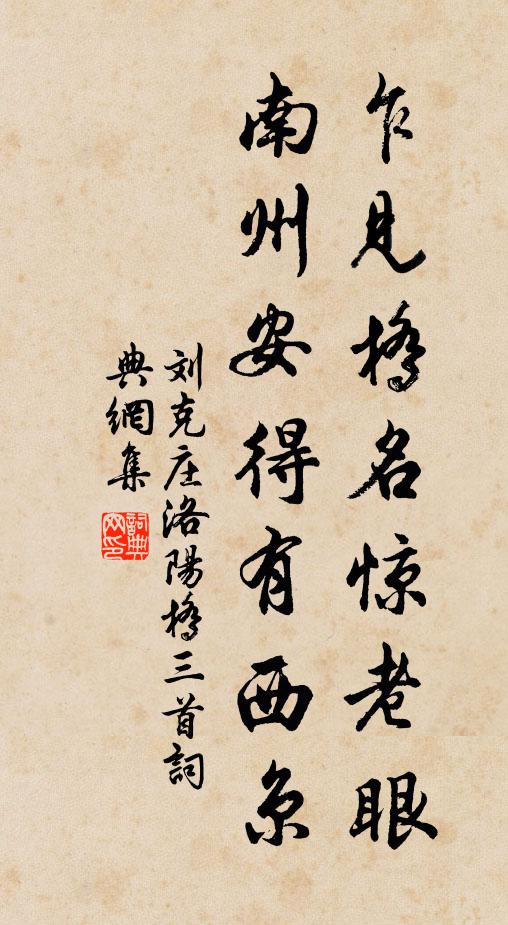 乍見橋名惊老眼
南州安得有西京
刘克庄洛陽橋三首詞
典網集
詞典網印